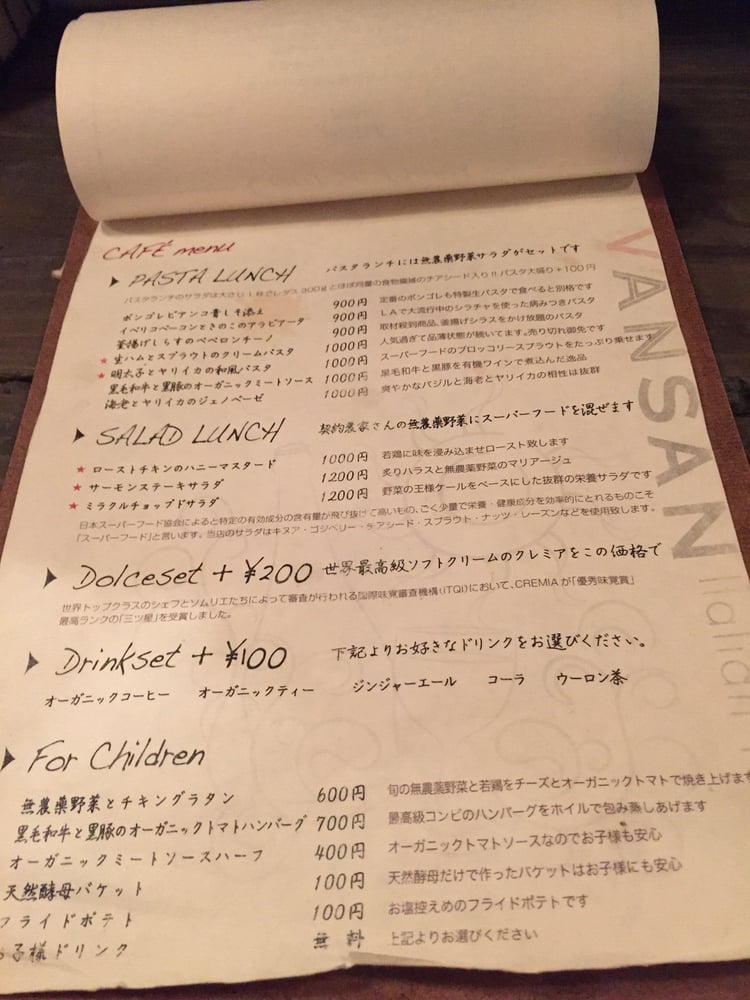 CAFÉ menu
PASTA LUNCH パスタランチには無農薬野菜サラダがセットです
パスタランチのサラダは大さじ1杯でレタス300gとほぼ同量の食物繊維のチアシード入り!!パスタ大盛り+100円
ボンゴレビアンコ青しそ添え 900円 定番のボンゴレも特製生パスタで食べると別格です
イベリコベーコンときのこのアラビアータ 900円 LAで大流行中のシラチャを使った病みつきパスタ
釜揚げしらすのペペロンチーノ 900円 取材殺到商品、釜揚げシラスをかけ放題のパスタ
★ 生ハムとスプラウトのクリームパスタ 1000円 人気過ぎて品薄状態が続いてます。売り切れ御免です
★ 明太子とヤリイカの和風パスタ 1000円 スーパーフードのブロッコリースプラウトをたっぷり乗せます
黒毛和牛と黒豚のオーガニックミートソース 1000円 黒毛和牛と黒豚を有機ワインで煮込んだ逸品
海老とヤリイカのジェノベーゼ 1000円 爽やかなバジルと海老とヤリイカの相性は抜群
SALAD LUNCH 契約農家さんの無農薬野菜にスーパーフードを混ぜます
★ ローストチキンのハニーマスタード 1000円 若鶏に味を浸み込ませロースト致します
★ サーモンステーキサラダ 1200円 炙りハラスと無農薬野菜のマリアージュ
★ ミラクルチョップドサラダ 1200円 野菜の王様ケールをベースにした抜群の栄養サラダです
日本スーパーフード協会によると特定の有効成分の含有量が飛び抜けて高いもの、ごく少量で栄養・健康成分を効率的にとれるものこそ
「スーパーフード」と言います。当店のサラダはキヌア・ゴジベリー・チアシード・スプラウト・ナッツ・レーズンなどを使用致します。
Dolceset + ¥200 世界最高級ソフトクリームのクレミアをこの価格で
世界トップクラスのシェフとソムリエたちによって審査が行われる国際味覚審査機構(iTQi)において、CREMIAが「優秀味覚賞」
最高ランクの「三ツ星」を受賞しました。
Drinkset + ¥100 下記よりお好きなドリンクをお選びください。
オーガニックコーヒー オーガニックティー ジンジャーエール コーラ ウーロン茶
For Children
無農薬野菜とチキングラタン 600円 旬の無農薬野菜と若鶏をチーズとオーガニックトマトで焼き上げます
黒毛和牛と黒豚のオーガニックトマトハンバーグ 700円 最高級コンビのハンバーグをホイルで包み蒸しあげます
オーガニックミートソースハーフ 400円 オーガニックトマトソースなのでお子様も安心
天然酵母バケット 100円 天然酵母だけで作ったバケットはお子様にも安心
フライドポテト 100円 お塩控えめのフライドポテトです
お子様ドリンク 無料 上記よりお選びください
VANSAN
Italian